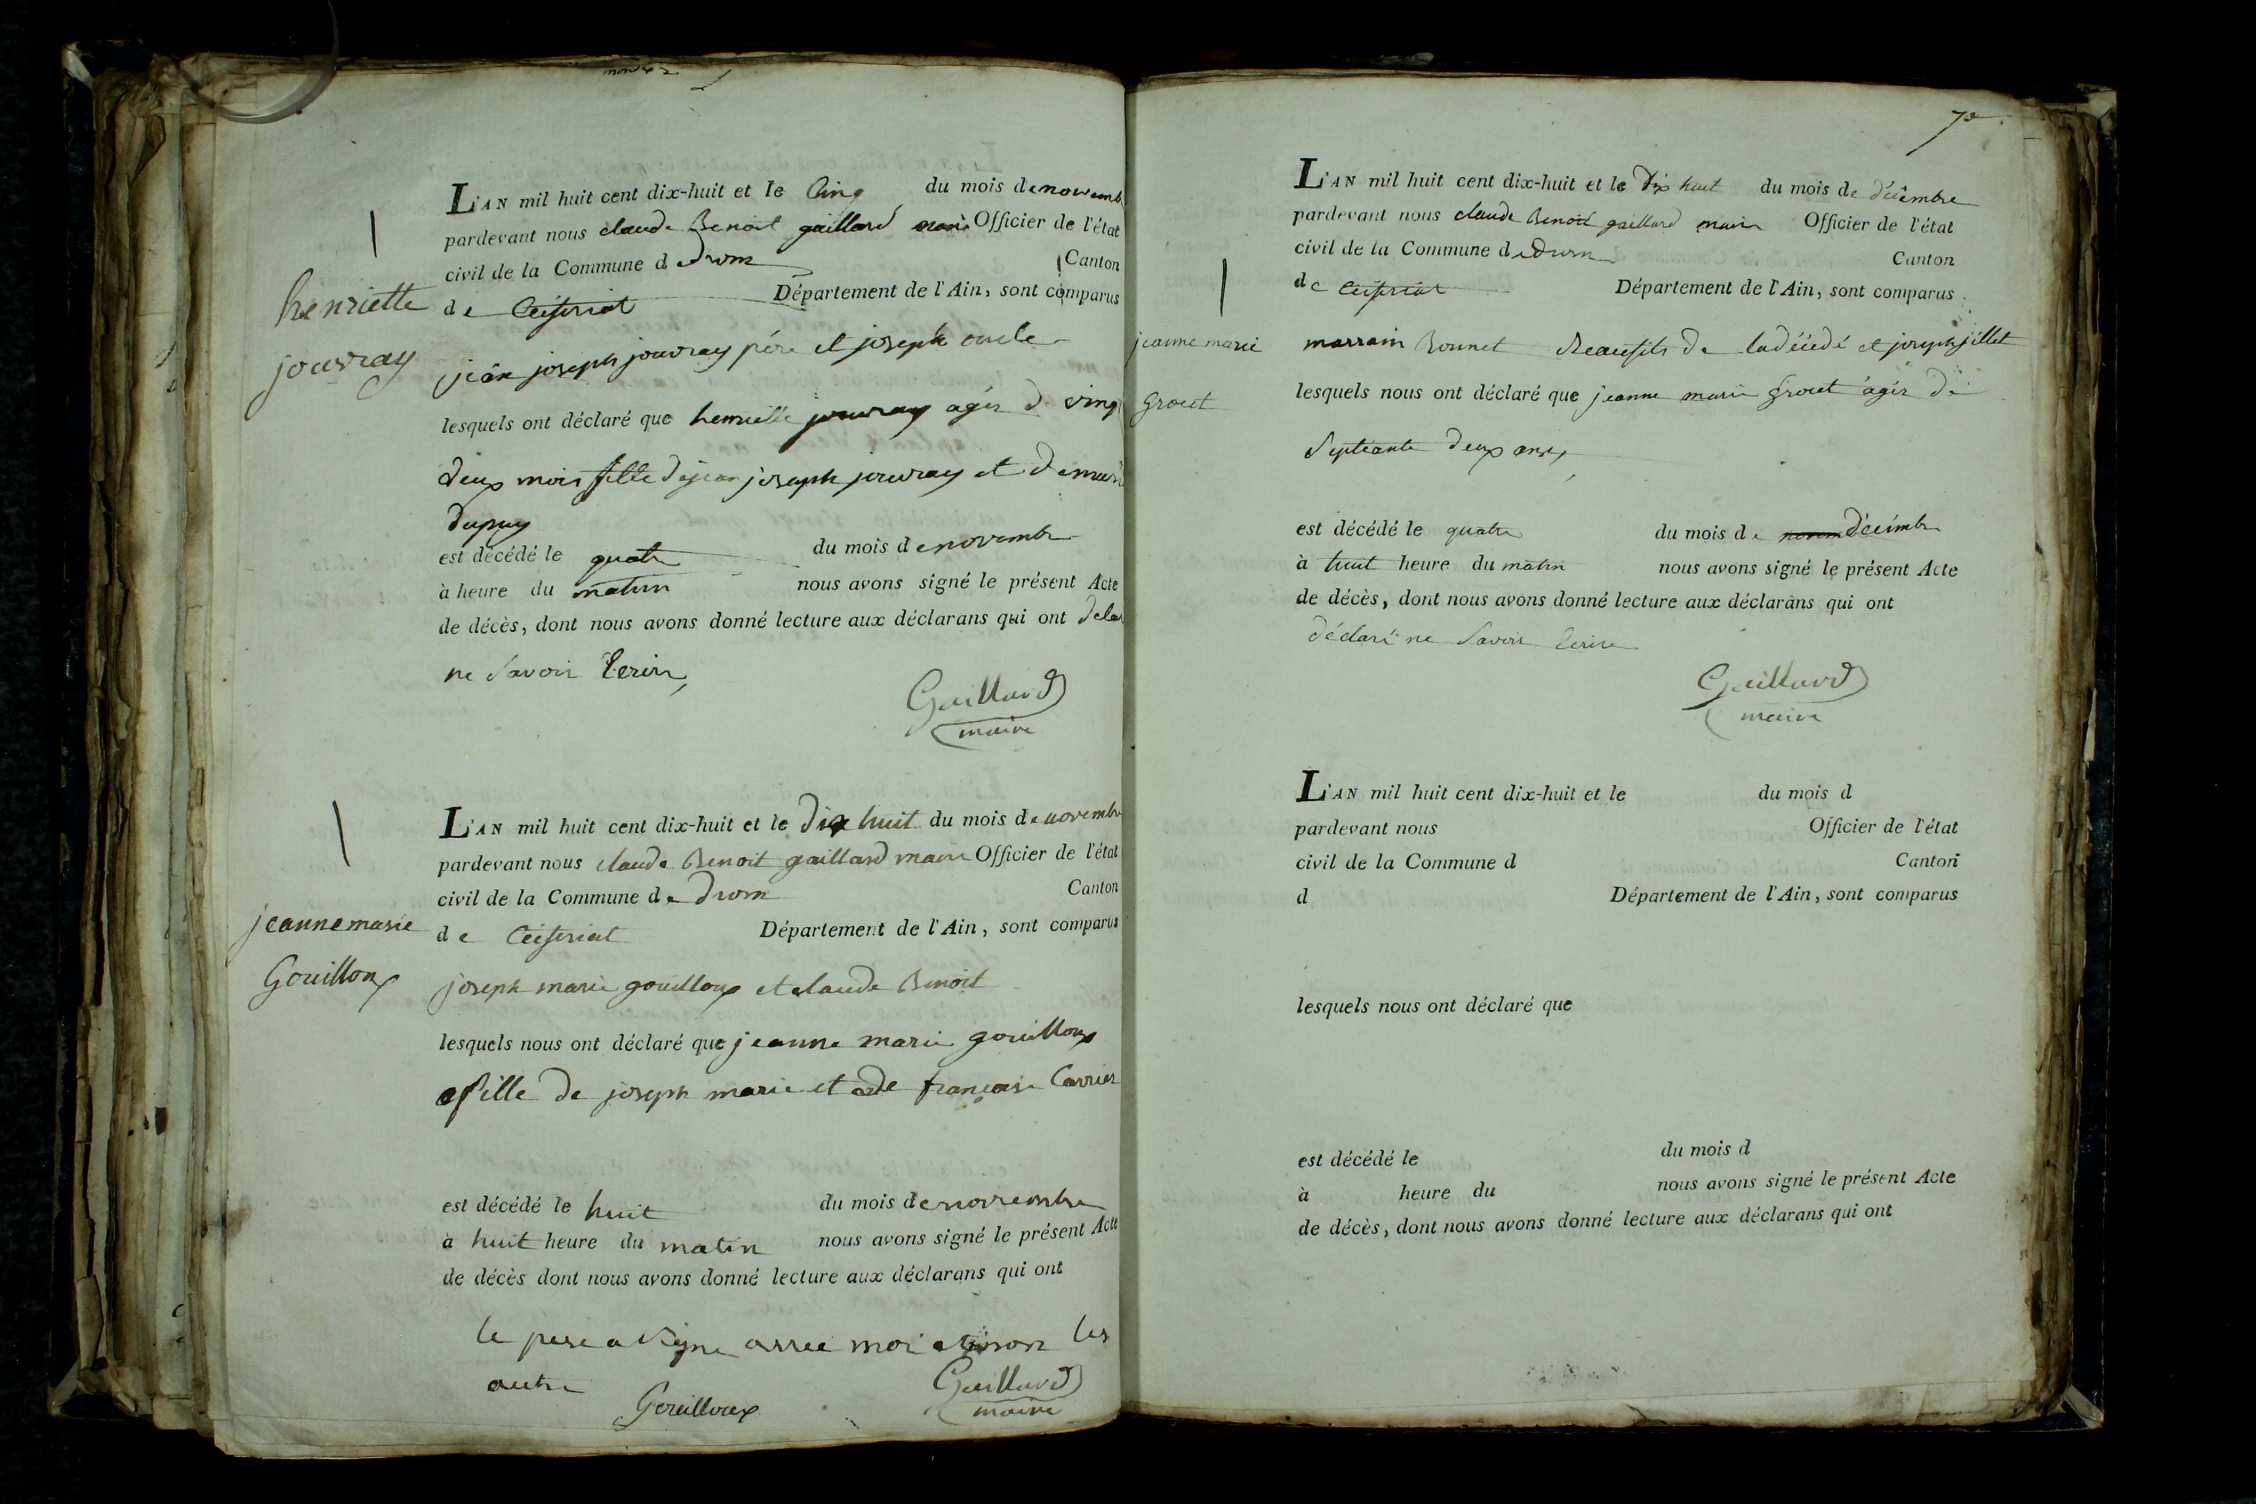 L'AN mil huit cent dix-huit et le Cinq du mois de novemb
pardevant nous claude Benoit gaillard maire Officier de l'état
civil de la Commune de Drom Canton
de Ceiseriat Département de l'Ain, sont comparus
henriette
jouvray
jean joseph jouvray pére et joseph oncle
lesquels ont déclaré que henriette jouvray agér de ving
deux mois fille de jean joseph jouvray et de mari
dupuy
est décédé le quatre du mois de novembre
à heure du matin nous avons signé le présent Acte
de décès, dont nous avons donné lecture aux déclarans qui ont decla
ne savoir Ecrire,
Gaillard
maire
L'AN mil huit cent dix-huit et le dix huit du mois de novembre
pardevant nous claude Benoit gaillard maire Officier de l'état
civil de la Commune de Drom Canton
de Ceiseriat Département de l'Ain, sont comparus
jeanne marie
Gouilloux
joseph marie gouilloux et claude Benoit
lesquels nous ont déclaré que jeanne marie gouilloux
fille de joseph marie et de francoise Carrier
est décédé le huit du mois de novembre
à huit heure du matin nous avons signé le présent Acte
de décès dont nous avons donné lecture aux déclarans qui ont
le pere a signe avec moi et non les
autre
Gouilloux
Gaillard
maire
L'AN mil huit cent dix-huit et le Dix huit du mois de décembre
pardevant nous claude Benoit gaillard maire Officier de l'état
civil de la Commune de Drom Canton
de Ceiseriat Département de l'Ain, sont comparus
jeanne marie
Grocet
Bonnet Beaufils de la décédé et joseph jillet
lesquels nous ont déclaré que jeanne marie Grocet agér de
septeante deux ans,
est décédé le quatre du mois de novem décembre
à huit heure du matin nous avons signé le présent Acte
de décès, dont nous avons donné lecture aux déclarans qui ont
déclaré ne savoir Ecrire
Gaillard
maire
L'AN mil huit cent dix-huit et le du mois d
pardevant nous Officier de l'état
civil de la Commune d Canton
d Département de l'Ain, sont comparus
lesquels nous ont déclaré que
est décédé le du mois d
à heure du nous avons signé le présent Acte
de décès, dont nous avons donné lecture aux déclarans qui ont